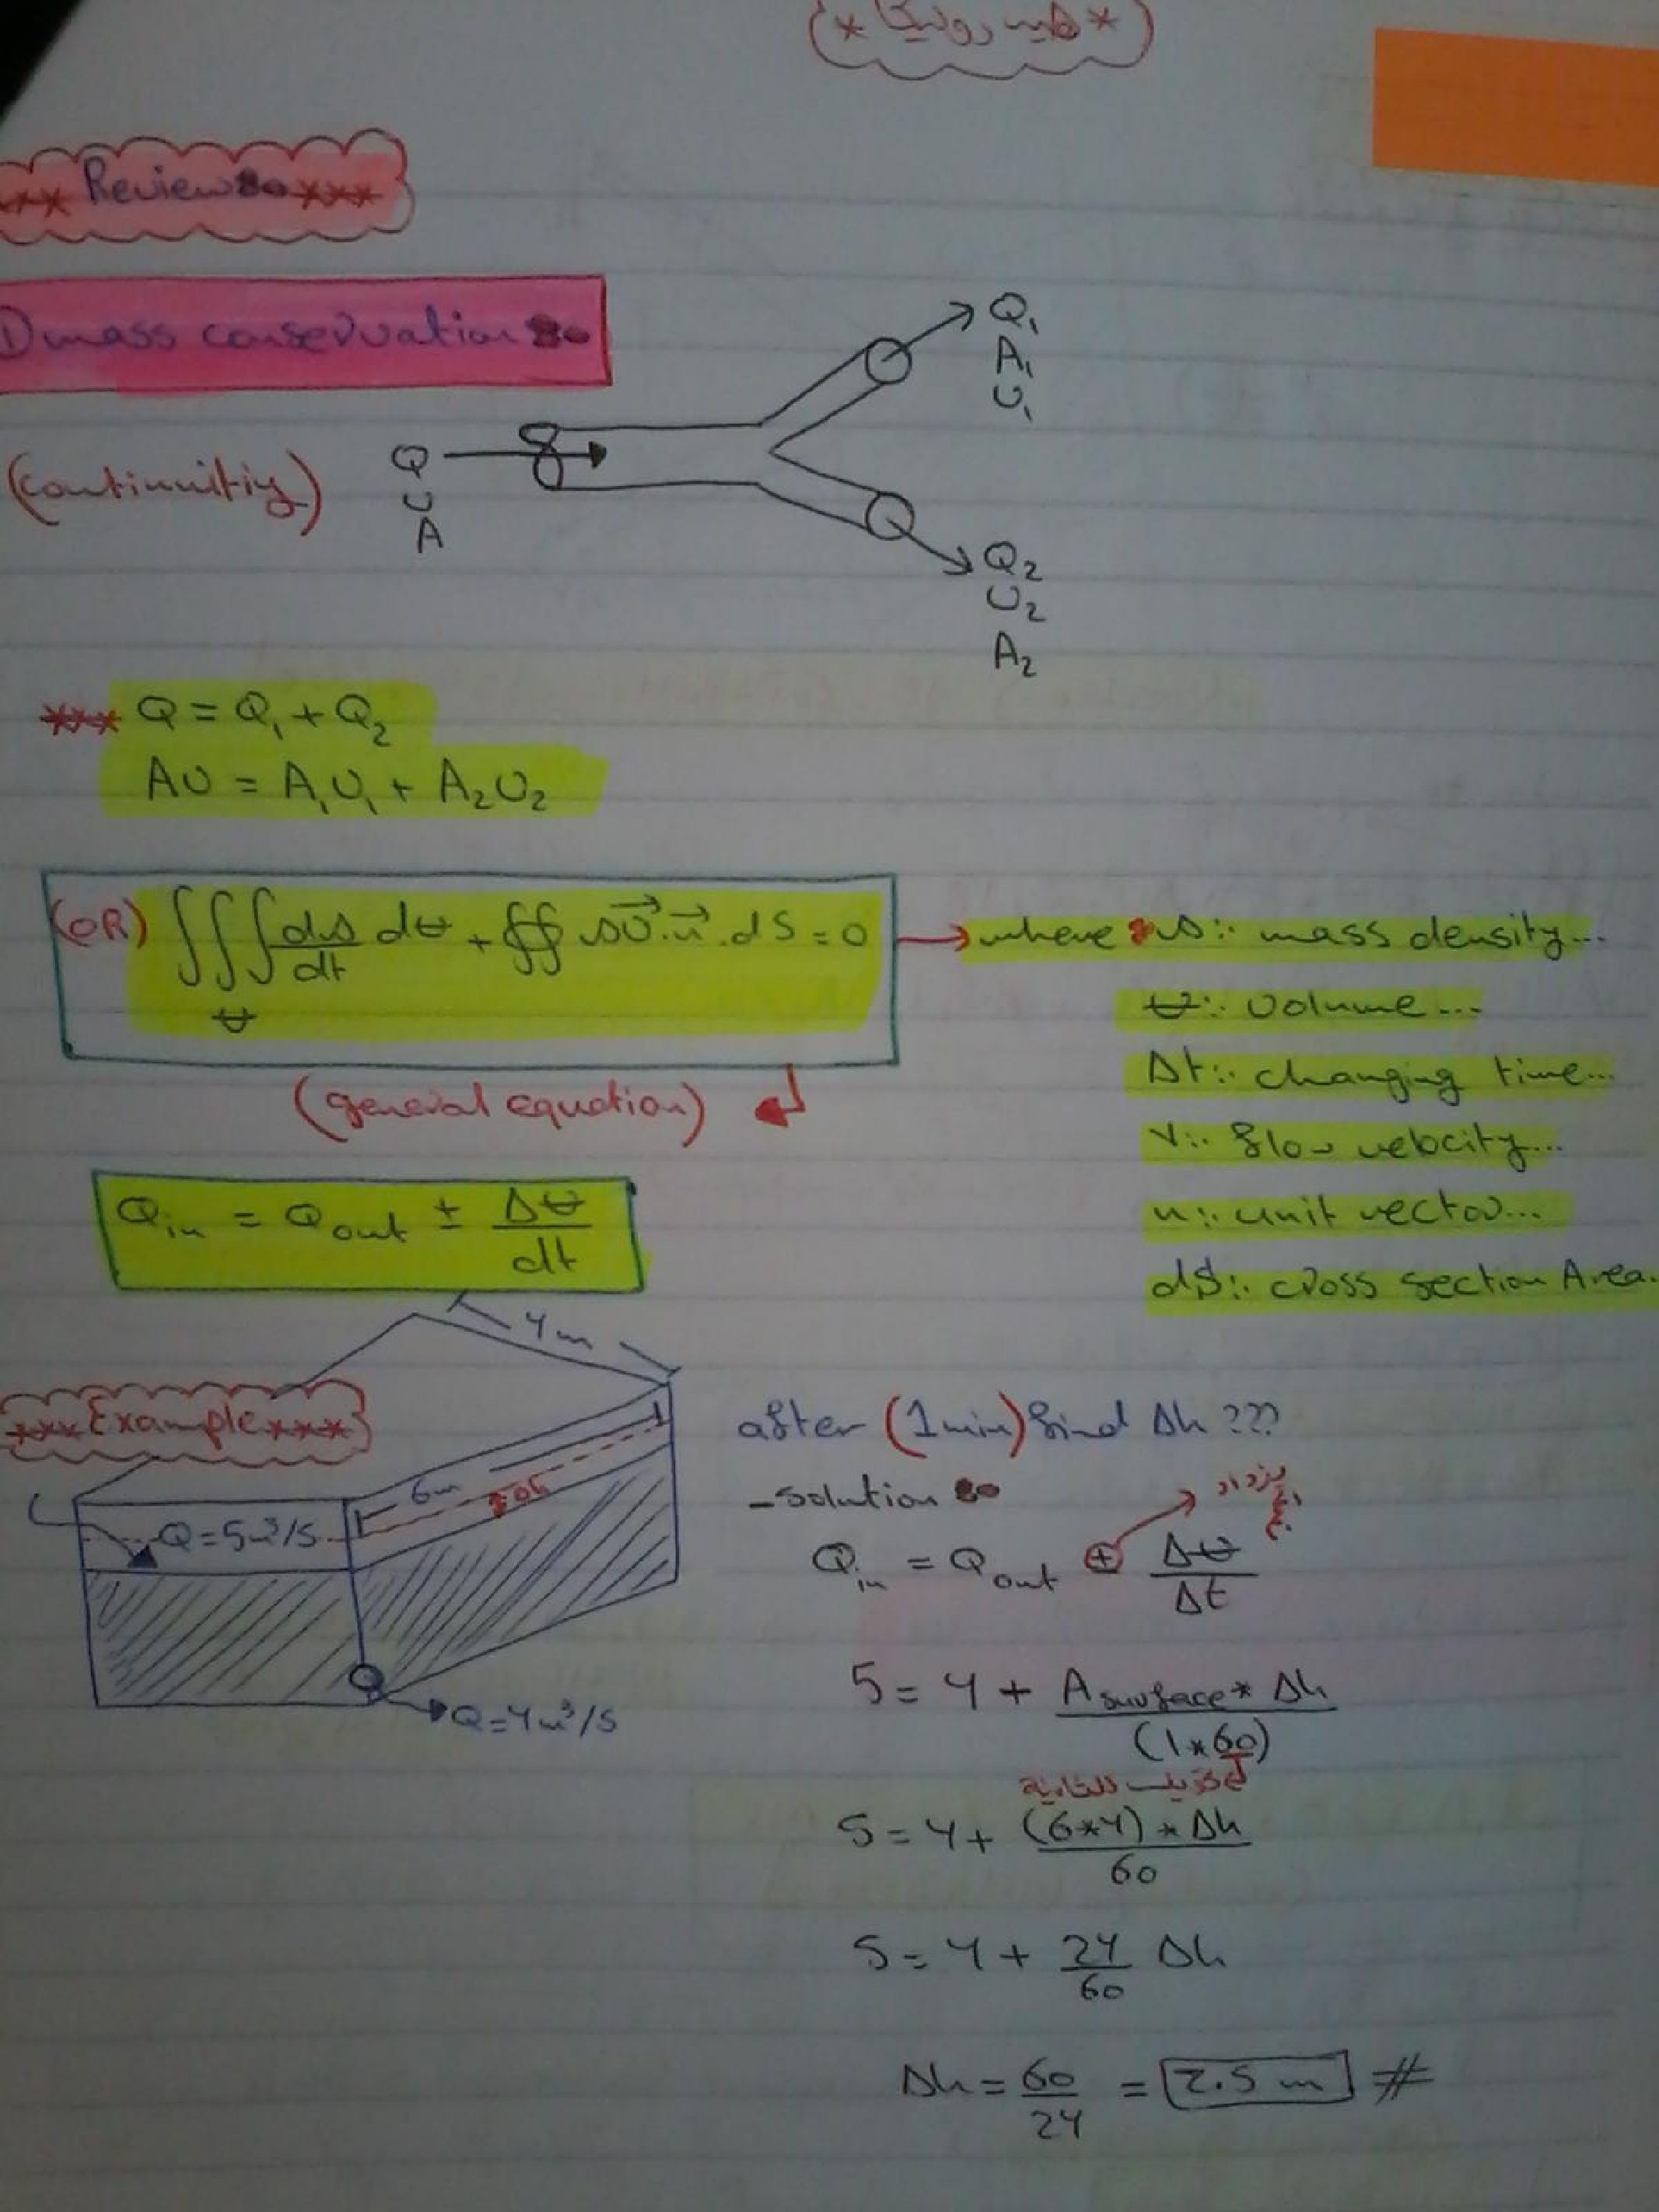 (* هيدروليكا *)
*** Review:- ***
1) mass conservation:-
(continuitiy)
Q
υ
A
Q₁
A₁
υ₁
Q₂
υ₂
A₂
*** Q = Q₁ + Q₂
Aυ = A₁υ₁ + A₂υ₂
(OR) ∭ dρ/dt dV̶ + ∯ ρυ⃗.n⃗.dS = 0
V̶
→ where ρ:: mass density...
V̶:: volume...
Δt:: changing time...
v:: flow velocity...
n:: unit vector...
dS:: cross section Area.
(general equation)
Q in = Q out ± ΔV̶/dt
4m
*** Example ***
6m
Δh
Q=5m³/s
Q=4m³/s
after (1min) find Δh ???
-solution:-
يزداد
Q in = Q out ⊕ ΔV̶/Δt
5 = 4 + A surface * Δh/(1*60)
5 = 4 + (6*4) * Δh/60
5 = 4 + 24/60 Δh
Δh = 60/24 = 2.5 m #